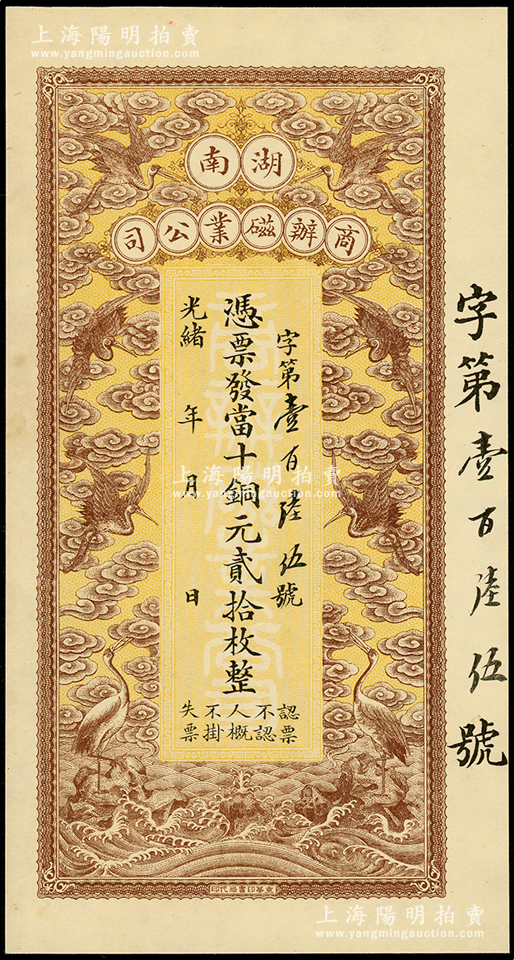 上海陽明拍賣
www.yangmingauction.com
上海陽明拍賣
www.yangmingauction.com
湖南
商辦磁業公司
字第壹百陸伍號
憑票發當十銅元貳拾枚整
光緒 年 月 日
認票
不認
人概
不掛
失票
字第壹百陸伍號
上海陽明拍賣
www.yangmingauction.com
京華印書局代印
上海陽明拍賣
www.yangmingauction.com